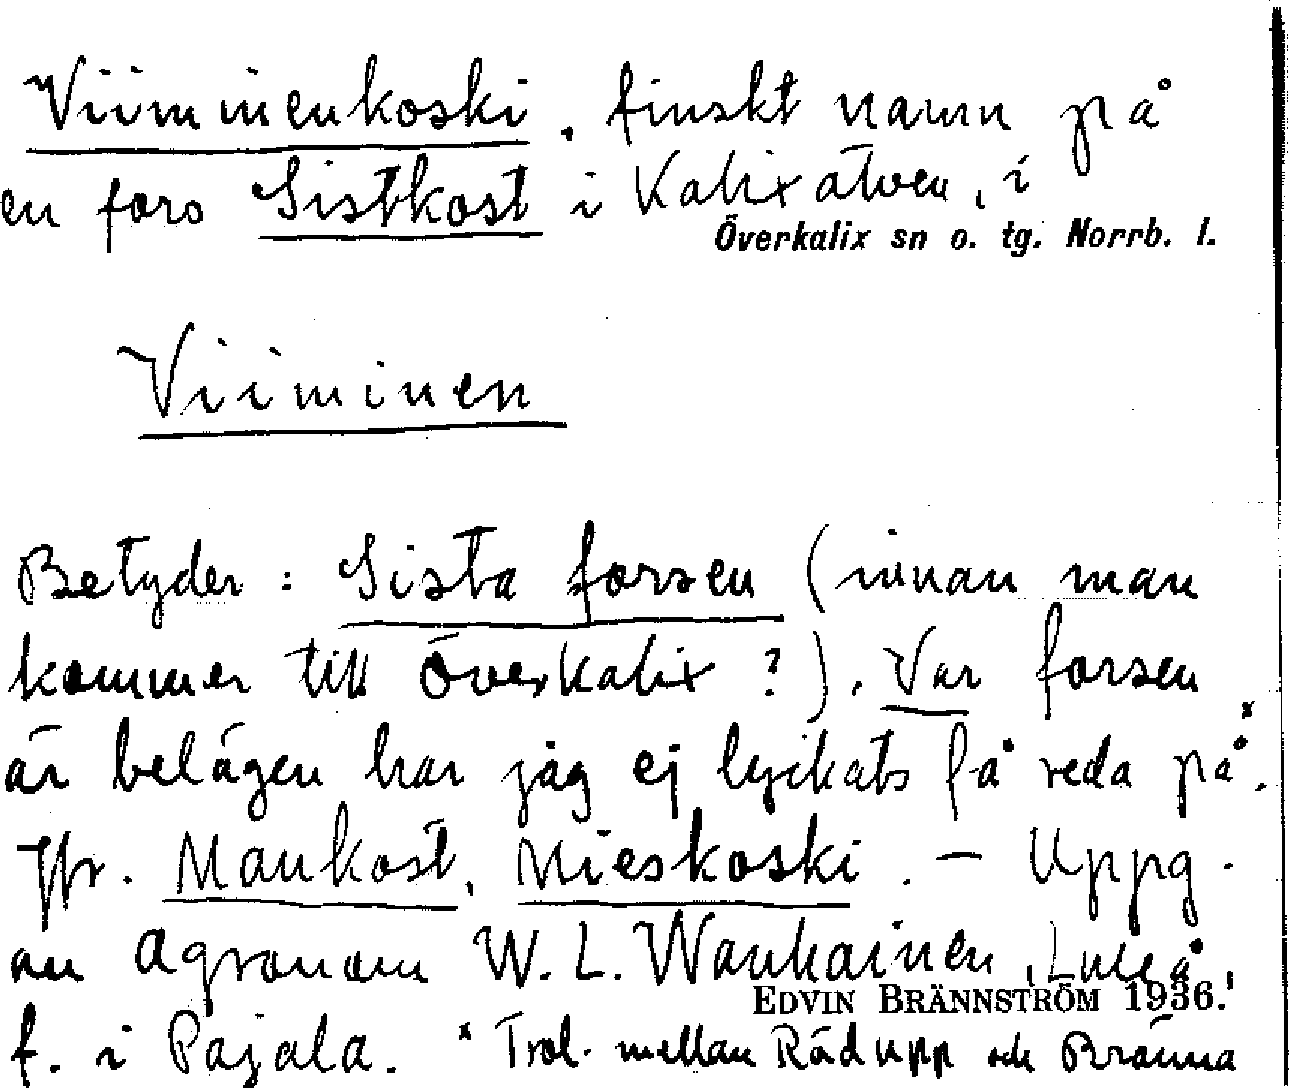 Viiminenkoski, finskt namn på
en fors Sistkost i Kalixälven, i
Överkalix sn o. tg. Norrb. l.
Viiminen
Betyder: Sista forsen (innan man
kommer till Överkalix?). Var forsen
är belägen har jag ej lyckats få reda på x.
Jfr. Mankost, Mieskoski. - Uppg.
av Agronom W. L. Wanhainen, Luleå,
EDVIN BRÄNNSTRÖM 1936.
f. i Pajala. x Trol. mellan Rödupp och Bränna